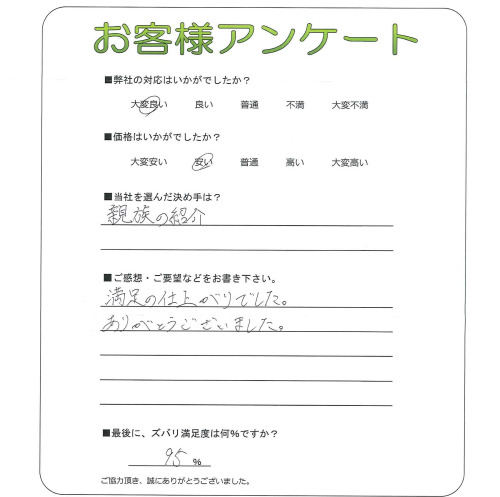 お客様アンケート
■弊社の対応はいかがでしたか？
大変良い 良い 普通 不満 大変不満
■価格はいかがでしたか？
大変安い 安い 普通 高い 大変高い
■当社を選んだ決め手は？
親族の紹介
■ご感想・ご要望などをお書き下さい。
満足の仕上がりでした。
ありがとうございました。
■最後に、ズバリ満足度は何％ですか？
95 ％
ご協力頂き、誠にありがとうございました。